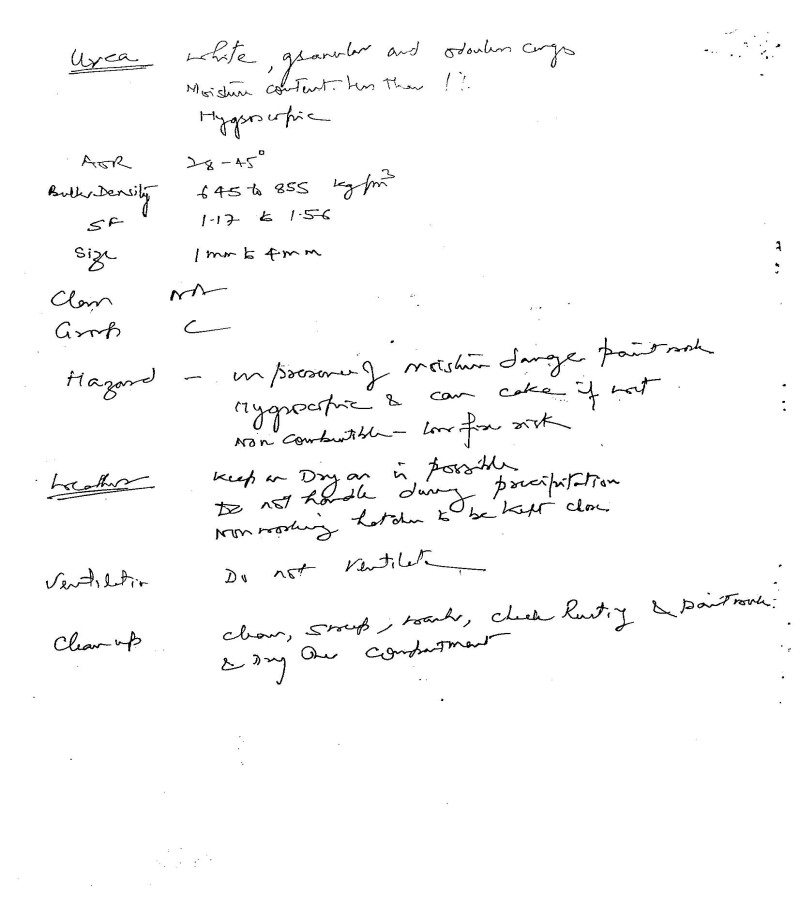 Urea white, granular and odourless cargo
Moisture content. less than 1%.
Hygroscopic
AOR 28-45°
Bulk Density 645 to 855 kg/m³
SF 1.17 to 1.56
Size 1mm to 4mm
Class NA
Group C
Hazard - in presence of moisture damage paint work
Hygroscopic & can cake if wet
Non Combustible - low fire risk
Weather Keep as Dry as is possible
Do not handle during precipitation
Non working hatches to be kept close
Ventilation Do not Ventilate
Clean up clean, sweep, wash, check rusting & paint work.
& Dry the compartment